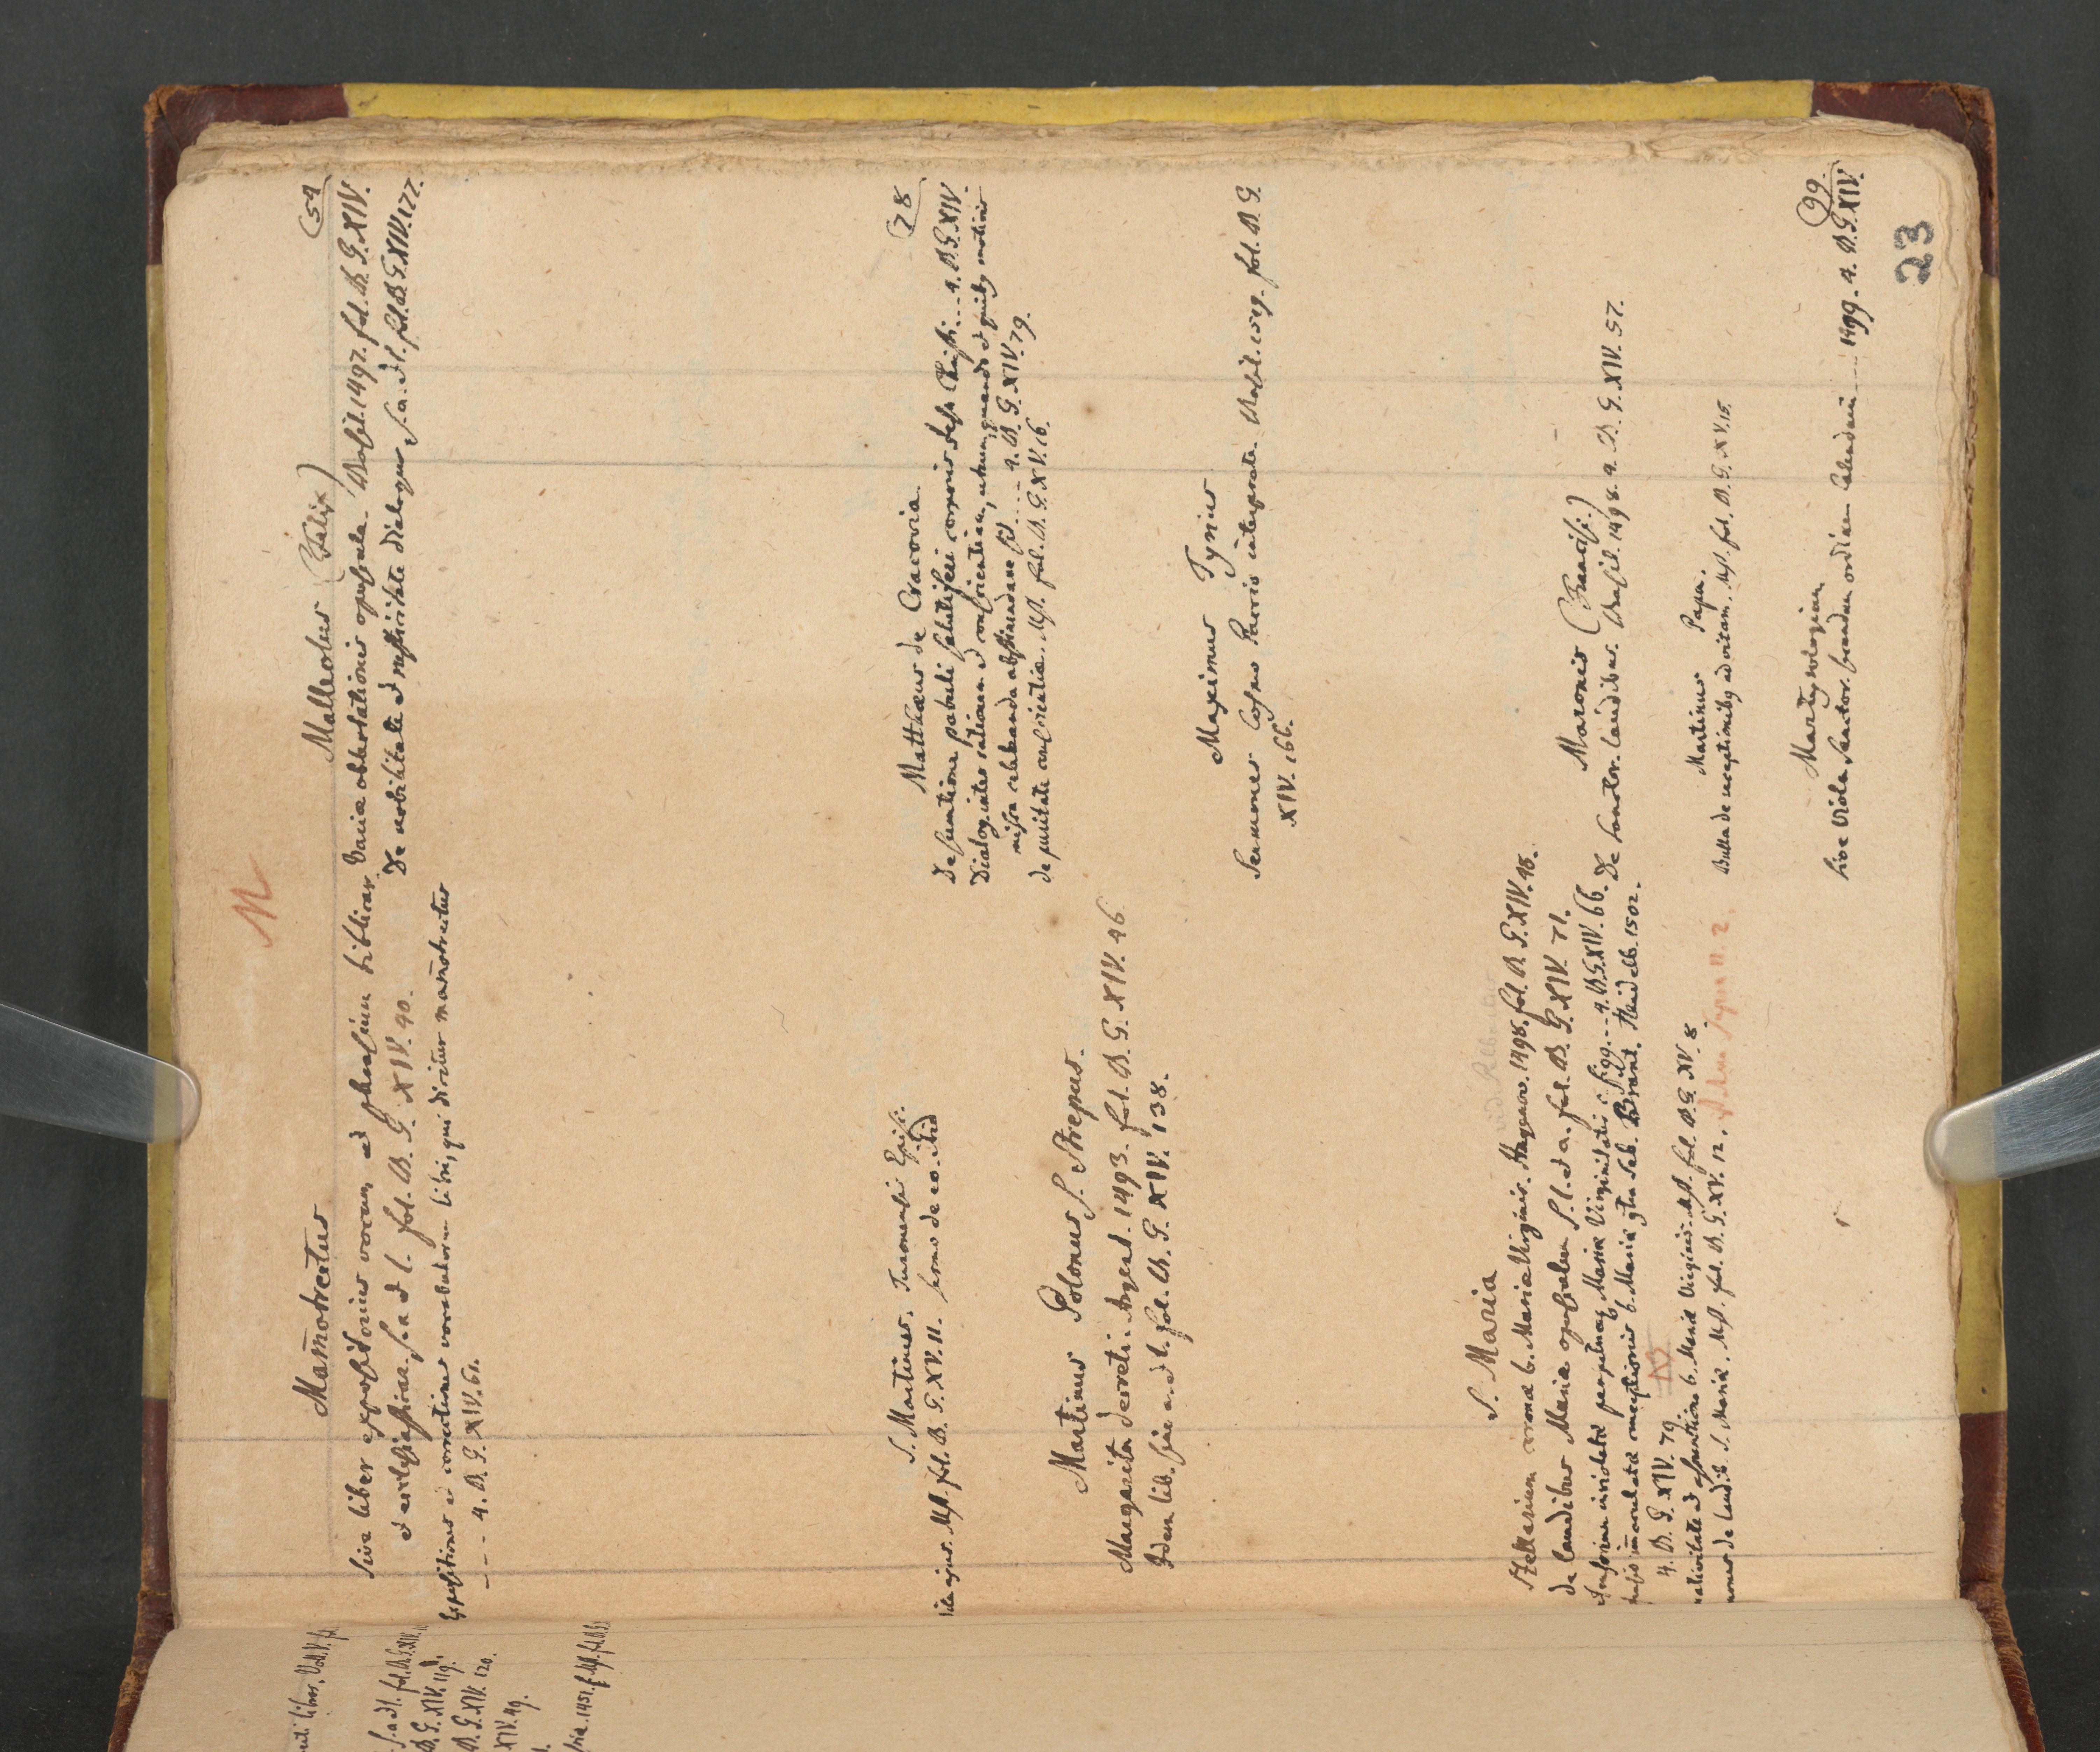 M
Mam̄otrectus
sive liber expositorius vocum et phrasium biblicar.
et ecclesiasticar. s. a et l. fol. B. G. XIV. 90.
Expositiones et correctiones vocabulorum libri, qui dicitur mam̄otrectus
--- 4. B. G. XIV. 61.
S. Martinus. Turonensis Episc.
Vita ejus. Msc. fol. B. G. XV. 11. sermo de eo. ibid
Martinus Polonus s. Strepus.
Margarita decreti. Argent. 1493. fol. B. G. XIV. 46
Idem lib. sine a. et l. fol. B. G. XIV. 138.
S. Maria
Stellarium corona b. Maria Virginis. Hagenov. 1498. fol. B. G. XIV. 48.
de laudibus Maria opusculum s. l. et a. fol. B. G. XIV. 71.
Defensorium inviolata perpetuaeq Maria Virginitatis c. figg. -- 4. B. G. XIV. 66.
immaculata conceptionis b. Maria Seb. Brant. Heidelb. 1502.
4. B. G. XIV. 79
nativitate et assumtione b. Maria Virginis. Msc. fol. B. G. XV. 8.
de laudib. S. Maria. Msc. fol. B. G. XV. 12.
Malleolus (Felix)
54
Varia oblectationis opuscula. Basil. 1497. fol. B. G. XIV.
De nobilitate et rusticitate dialogus s. a. et l. fol. B. G. XIV. 177.
Matthæus de Cracovia
78
De sumtione pabuli salutiferi corporis Jesu Christi --- 4. B. G. XIV.
Dialog. inter rationem et conscientiam, utrum, quando et quibq motivis
missa celebranda abstinendave sit ---- 4. B. G. XIV. 79.
de puritate conscientiæ. Msc. fol. B. G. XV. 16.
Maximus Tyrius
Sermones Cosmo Paccio interprete. Basil. 1519. fol. B. G.
XIV. 166.
Maronis (Francisc.)
De Sanctor. laudibus. Basil. 1498. 4. B. G. XIV. 57.
Martinus Papa.
Bulla de Msc. fol. B. G. XV. 15.
Martyrologium
99.
sive viola Sanctor. secundum ordinem Calendarii --- 1499. 4. B. G. XIV.
23